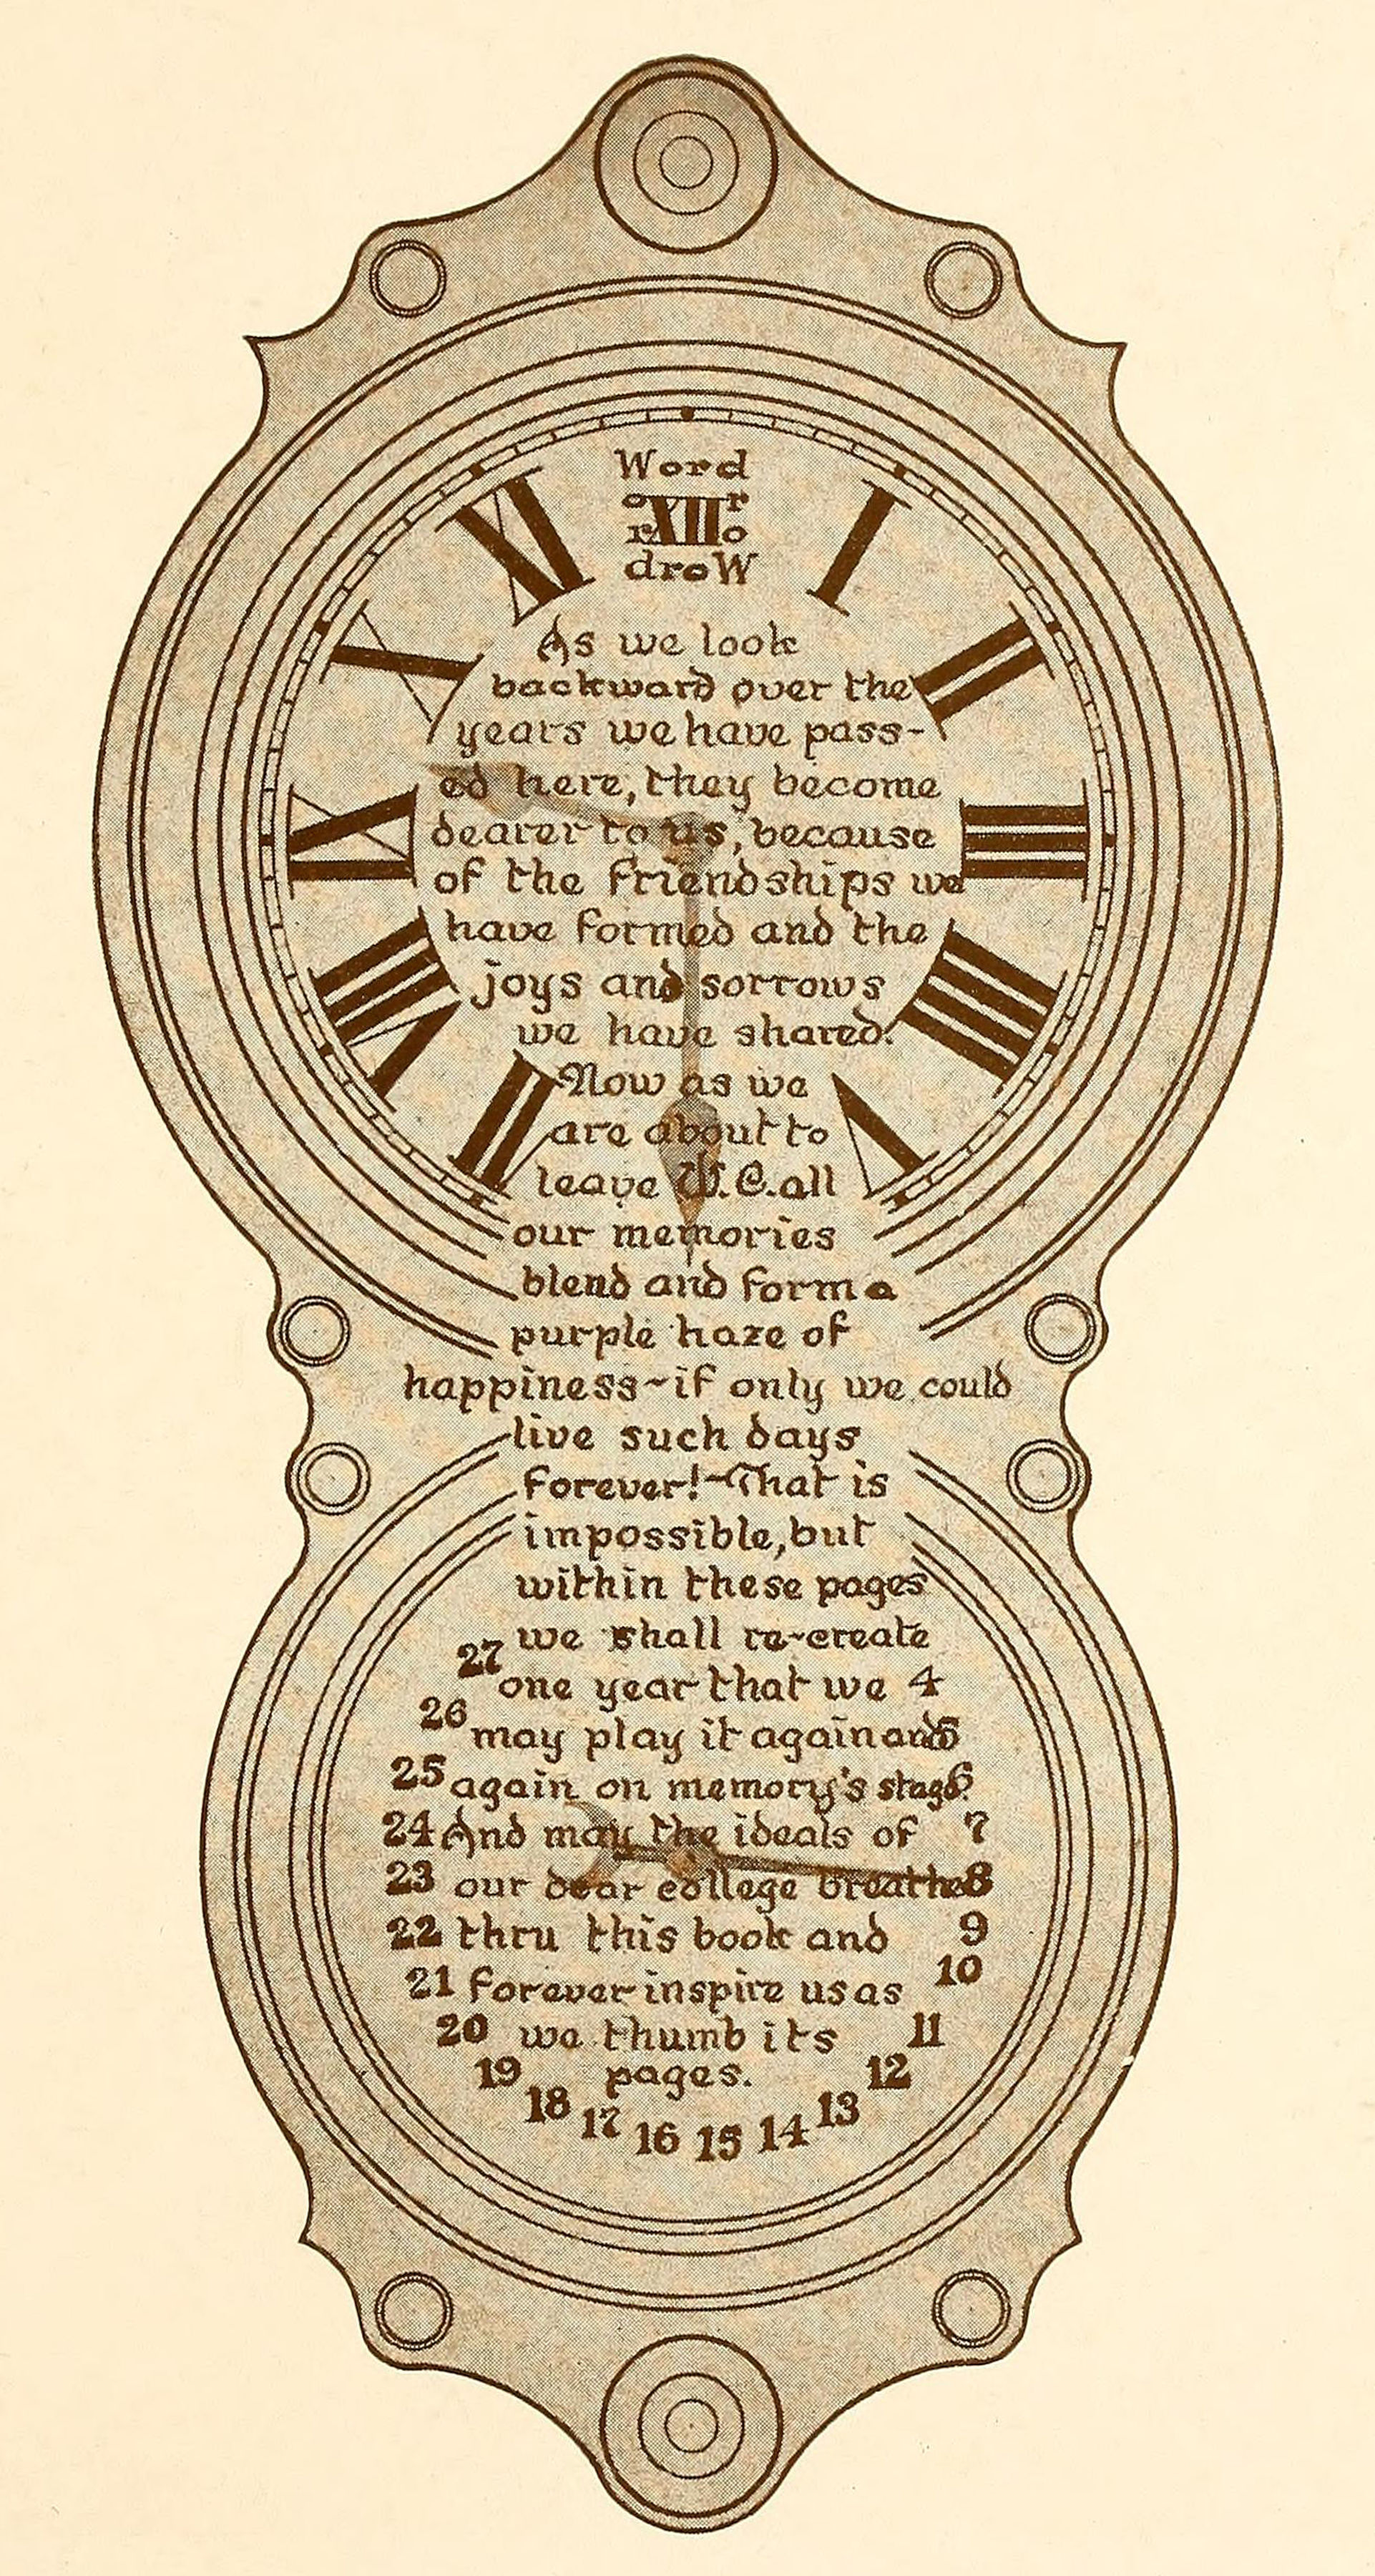 Word
o XII r
r o
droW
XI I
X II
IX III
VIII IIII
VII V
As we look
backward over the
years we have pass-
ed here, they become
dearer to us, because
of the friendships we
have formed and the
joys and sorrows
we have shared.
Now as we
are about to
leave W.C. all
our memories
blend and form a
purple haze of
happiness~if only we could
live such days
forever!~That is
impossible, but
within these pages
we shall re~create
27 one year that we 4
26 may play it again and 5
25 again on memory's stage. 6
24 And may the ideals of 7
23 our dear college breathe 8
22 thru this book and 9
21 forever inspire us as 10
20 we thumb its 11
19 pages. 12
18 17 16 15 14 13